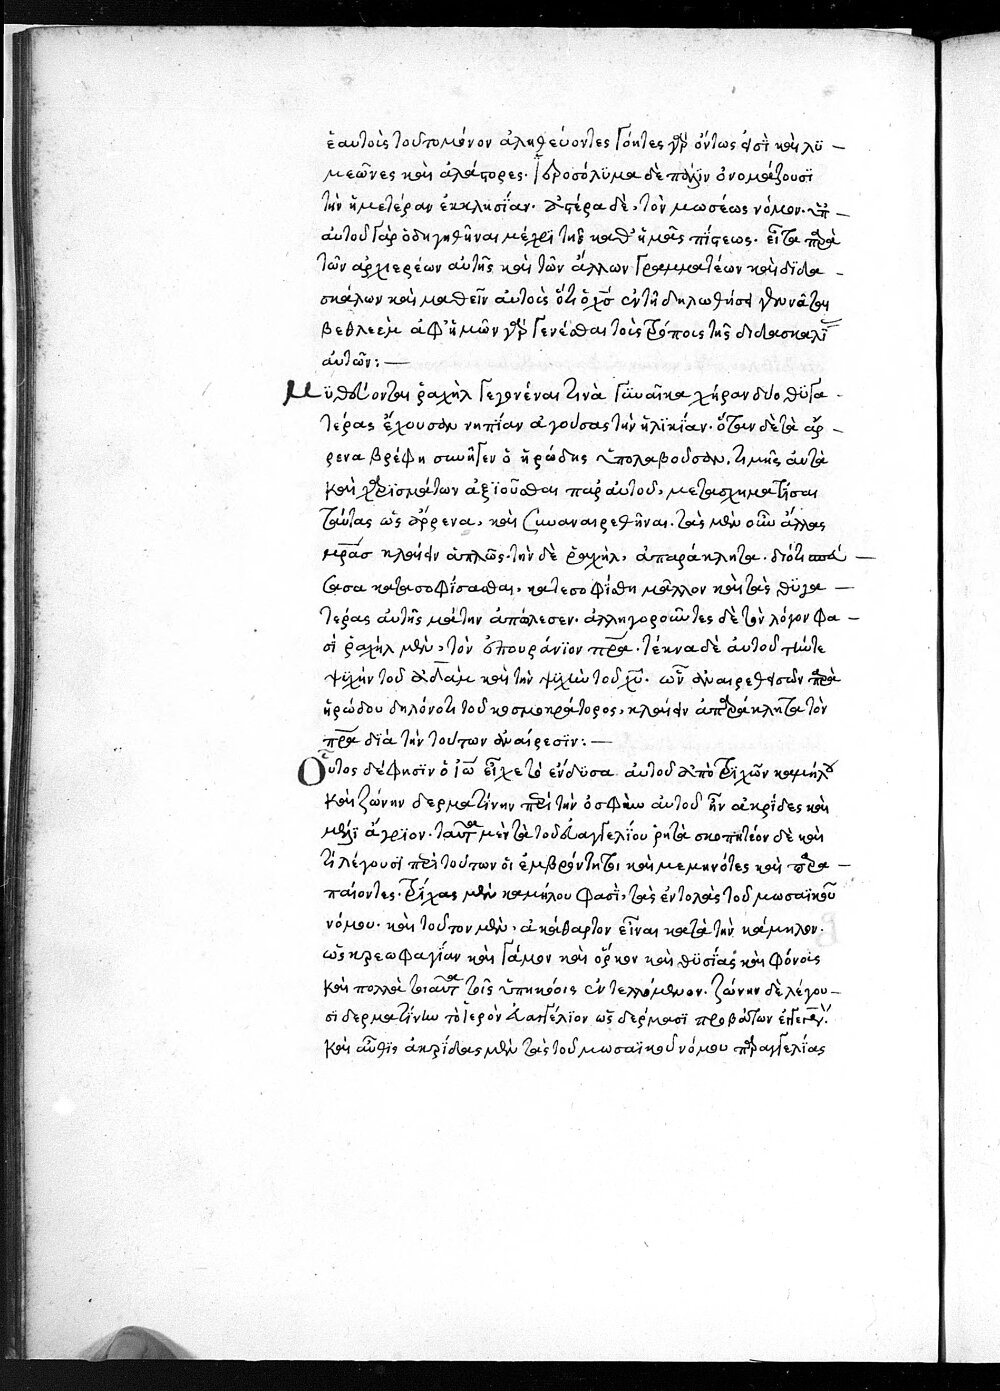 ἑαυτοῖς τοῦτο μόνον ἀληθεύοντες γόητες γὰρ ὄντως εἰσὶ καὶ λϋ –
μεῶνες καὶ ἀλάστορες. Ἱεροσόλϋμα δὲ πάλιν ὀνομάζουσϊ
τὴν ἡμετέραν ἐκκλησίαν. ἀστέρα δὲ, τὸν μωσέως νόμον. ὑπ –
αὐτοῦ γὰρ ὁδηγηθῆναι μέχρι τῆς καθ ἡμᾶς πίστεως. εἶτα παρὰ
τῶν ἀρχιερέων αὐτῆς καὶ τῶν ἄλλων γραμματέων καὶ διδα –
σκάλων καὶ μαθεῖν αὐτοὶς ὅτι ὁ χς ἐν τῇ δηλωθήσῃ γεννᾶται
βεθλεὲμ ἀφ ἡμῶν γὰρ γενέσθαι τοὶς τρόποις τῆς διδασκαλί
αὐτῶν: –
Μϋθεύονται ῥαχὴλ γεγονέναι τινὰ γϋναῖκα χήραν δύο θϋγα –
τέρας ἔχουσαν νηπίαν ἀγούσας τὴν ἡλικίαν. ὅταν δὲ τὰ ἄρ –
ρενα βρέφη συνῆγεν ὁ ἡρώδης ὑπολαβοῦσαν. τιμῆς αὐτὰ
καὶ χαρισμάτων ἀξϊοῦσθαι παρ αὐτοῦ, μετασχηματίσαι
ταύτας ὡς ἄρρενα, καὶ συναναιρεθῆναι. τὰς μὲν οὖν ἄλλας
μρας κλαίειν ἁπλῶς. τὴν δὲ ῥαχὴλ, ἀπαράκλητα. διότι –
τασα κατασοφίσασθαι, κατεσοφίσθη μᾶλλον καὶ τὰς θϋγα –
τέρας αὐτῆς μάτην ἀπώλεσεν. ἀλληγοροῦντες δὲ τὸν λόγον φα –
σὶ ῥαχὴλ μὲν, τὸν ἐπουράνϊον πρα. τέκνα δὲ αὐτοῦ
ψϋχὴν τοῦ ἀδὰμ καὶ τὴν ψϋχὴν τοῦ χυ. ὧν ἀναιρεθεισῶν παρὰ
ἡρώδου δηλόνοτι τοῦ κοσμοκράτορος, κλαίειν ἀπαράκλητα τὸν
πρα διὰ τὴν τούτων ἀναίρεσϊν: –
Οὗτος δέ φησϊν ὁ ἰω εἶχε τὸ ἔνδϋμα αὐτοῦ ἀπὸ τριχῶν καμήλου
καὶ ζώνην δερματίνην περὶ τὴν ὀσφὺν αὐτοῦ ἦν ἀκρίδες καὶ
μέλϊ ἄγρϊον. ταῦτα μὲν τὰ τοῦ εὐαγγελίου ῥητὰ σκοπητέον δὲ καὶ
τί λέγουσϊ περὶ τούτων οἱ ἐμβρόντητοι καὶ μεμηνότες καὶ παρα –
παίοντες. τρίχας μὲν καμήλου φασὶ, τὰς ἐντολὰς τοῦ μωσαϊκοῦ
νόμου. καὶ τοῦτον μὲν, ἀκάθαρτον εἶναι κατὰ τὴν κάμηλον.
ὡς κρεωφαγίαν καὶ γάμον καὶ ὅρκον καὶ θϋσίας καὶ φόνοις
καὶ πολλὰ τοιαῦτα τοῖς ὑπηκόοις ἐντελλόμενον. ζώνην δὲ λέγου –
σι δερματίνην τὸ ἱερὸν εὐαγγέλϊον ὡς δέρμασϊ προβάτων ἐγγεγραμμένον.
καὶ αὖθις ἀκρίδας μὲν τὰς τοῦ μωσαϊκοῦ νόμου παραγγελίας